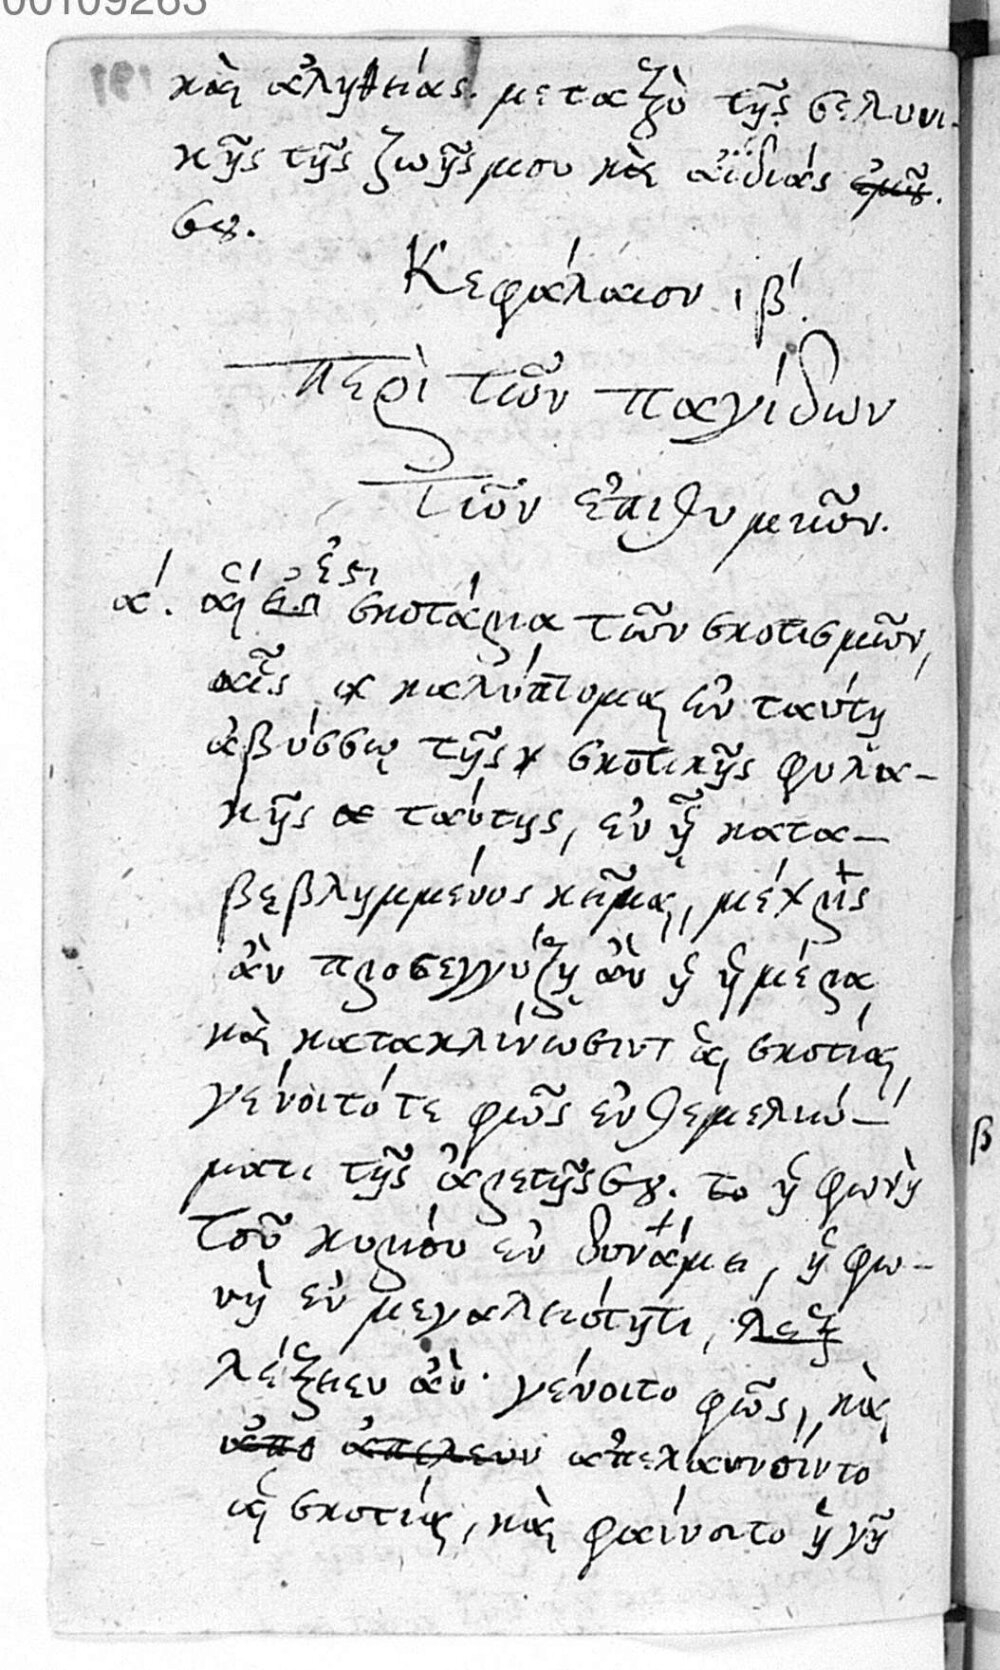 00109263
καὶ ἀληθείας. μεταξὺ τῆς σεληνι-
κῆς τῆς ζωῆς μου καὶ ἀϊδιάς ἐμοῦ.
σου.
Κεφάλαιον ιβ΄.
περὶ τῶν παγίδων
τῶν ἐπιθυμιῶν.
ἔτι
α΄. αἱ σκοτάρια τῶν σκοτισμῶν,
αἷς καλύπτομαι ἐν ταύτῃ
ἀβύσσῳ τῆς σκοτικῆς φυλα-
κῆς ταύτης, ἐν ᾗ κατα-
βεβλημμένος κεῖμαι, μέχρις
ἂν προσεγγύζῃ ἂν ἡ ἡμέρα
καὶ κατακλίνωσιντ αἱ σκοτίαι,
γένοιτό τε φῶς ἐν θεμελιώ-
ματι τῆς ἀρετῆς σου. ἡ φωνὴ
τοῦ κυρίου ἐν δυνάμει, ἡ φω-
νὴ ἐν μεγαλειότητι, λεξ
λέξειεν ἂν· γένοιτο φῶς, καὶ
ἀπο ἀπελευν ἀπελαυνοίντο
αἱ σκοτίαι, καὶ φαίνοιτο ἡ γῆ
β